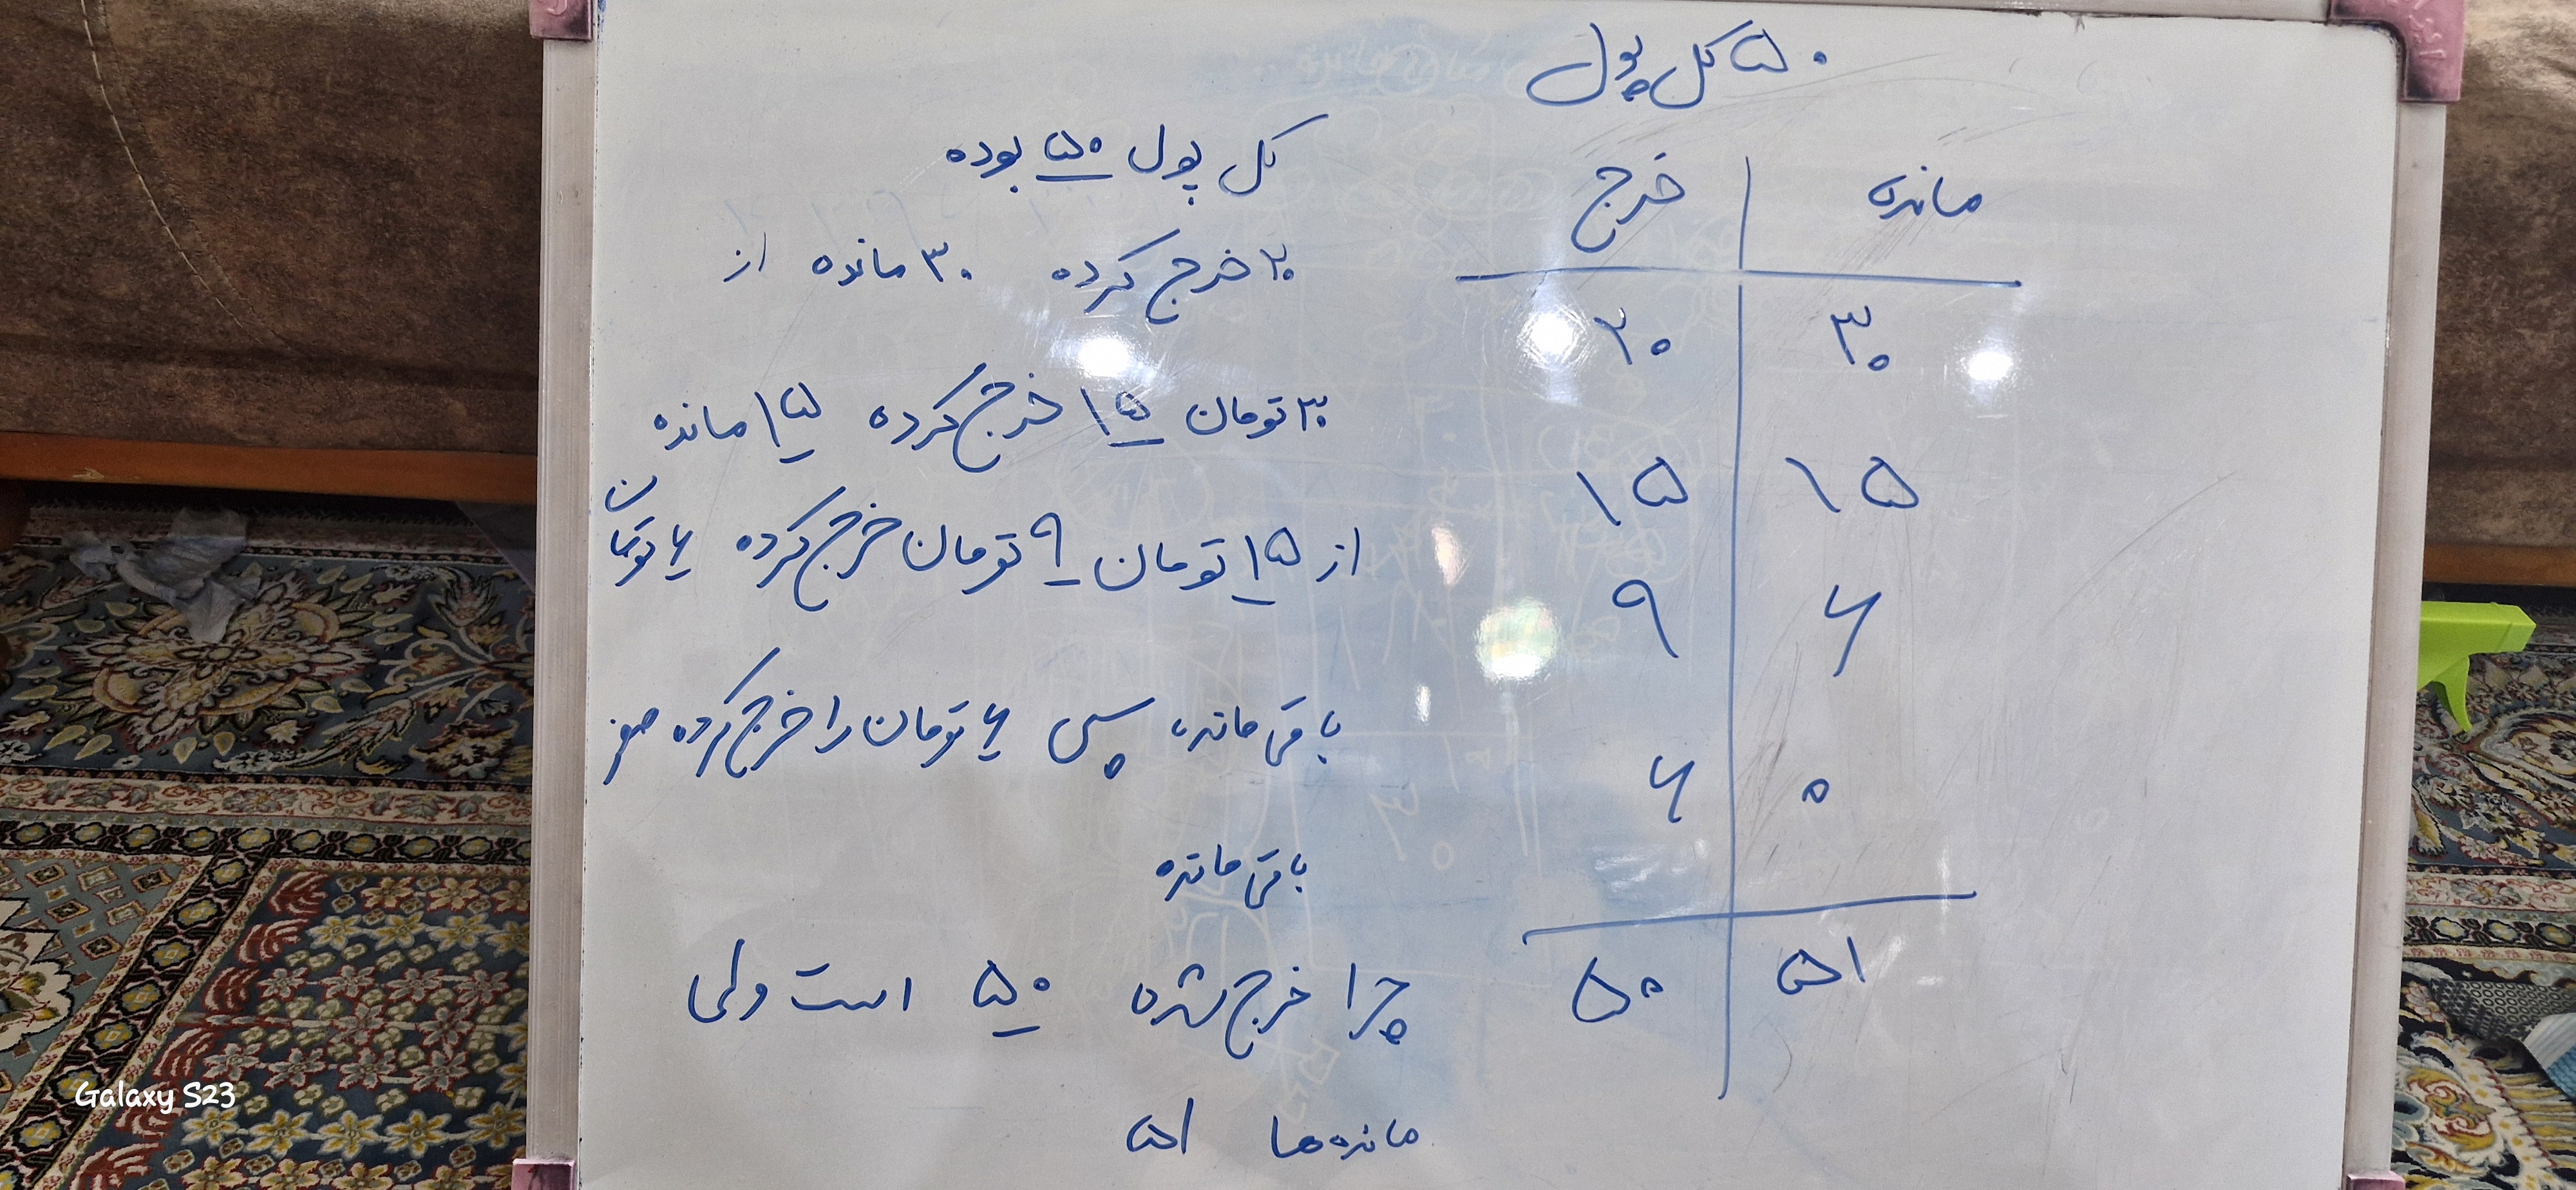 ۵۰ کل پول
خرج | مانده
۲۰ | ۳۰
۱۵ | ۱۵
۹ | ۶
۶ | ۰
۵۰ | ۵۱
کل پول ۵۰ بوده
۲۰ خرج کرده ۳۰ مانده از
۳۰ تومان ۱۵ خرج کرده ۱۵ مانده
از ۱۵ تومان ۹ تومان خرج کرده ۶ تومان
باقی مانده، سپس ۶ تومان را خرج کرده صفر
باقی مانده
چرا خرج شده ۵۰ است ولی
مانده ها ۵۱
Galaxy S23